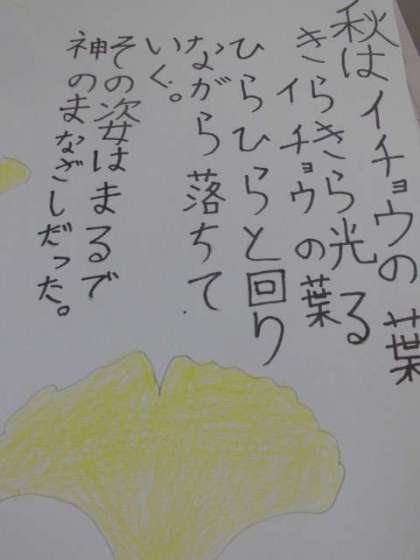 秋はイチョウの葉
きらきら光る
イチョウの葉
ひらひらと回り
ながら落ちて
いく。
その姿はまるで
神のまなざしだった。